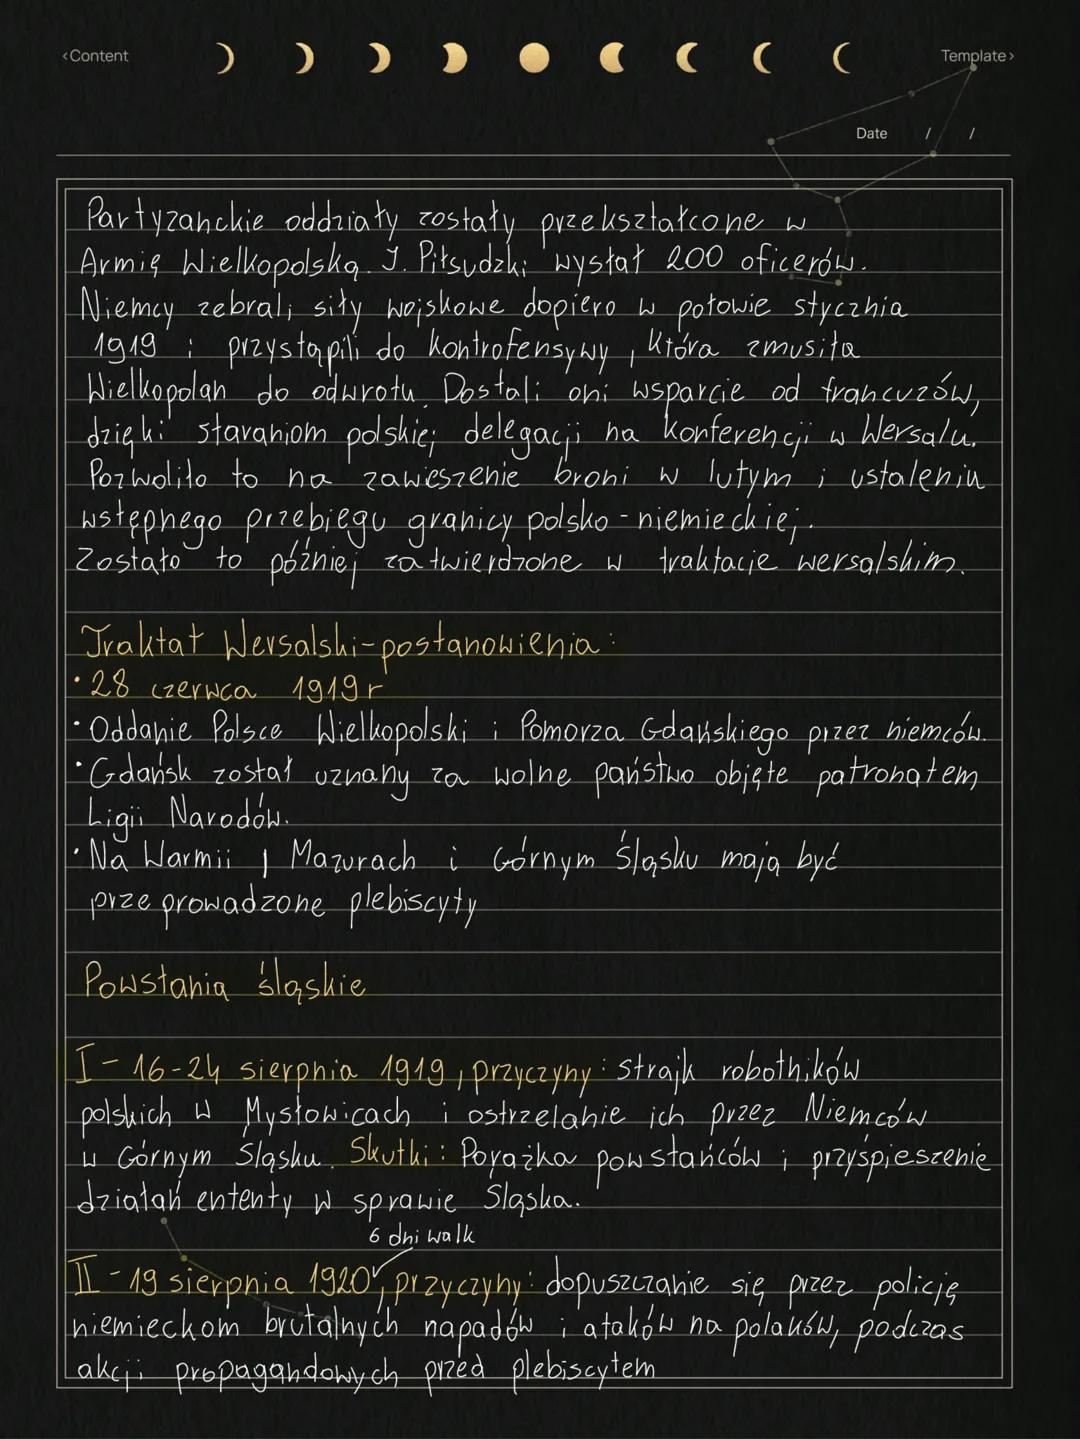 ‹Content
Template›
Date / /
Partyzanckie oddziały zostały przekształcone w
Armię Wielkopolską. J. Piłsudzki wysłał 200 oficerów.
Niemcy zebrali siły wojskowe dopiero w połowie stycznia
1919 i przystąpili do kontrofensywy, która zmusiła
Wielkopolan do odwrotu. Dostali oni wsparcie od francuzów,
dzięki staraniom polskiej delegacji na konferencji w Wersalu.
Pozwoliło to na zawieszenie broni w lutym i ustaleniu
wstępnego przebiegu granicy polsko-niemieckiej.
Zostało to później zatwierdzone w traktacie wersalskim.
Traktat Wersalski-postanowienia:
• 28 czerwca 1919r
• Oddanie Polsce Wielkopolski i Pomorza Gdańskiego przez niemców.
• Gdańsk został uznany za wolne państwo objęte patronatem
Ligii Narodów.
• Na Warmii, Mazurach i Górnym Śląsku mają być
przeprowadzone plebiscyty
Powstania śląskie
I - 16-24 sierpnia 1919, przyczyny: strajk robotników
polskich w Mysłowicach i ostrzelanie ich przez Niemców
w Górnym Śląsku. Skutki: Porażka powstańców i przyśpieszenie
działań ententy w sprawie Śląska.
6 dni walk
II - 19 sierpnia 1920, przyczyny: dopuszczanie się przez policję
niemieckom brutalnych napadów i ataków na polaków, podczas
akcji propagandowych przed plebiscytem